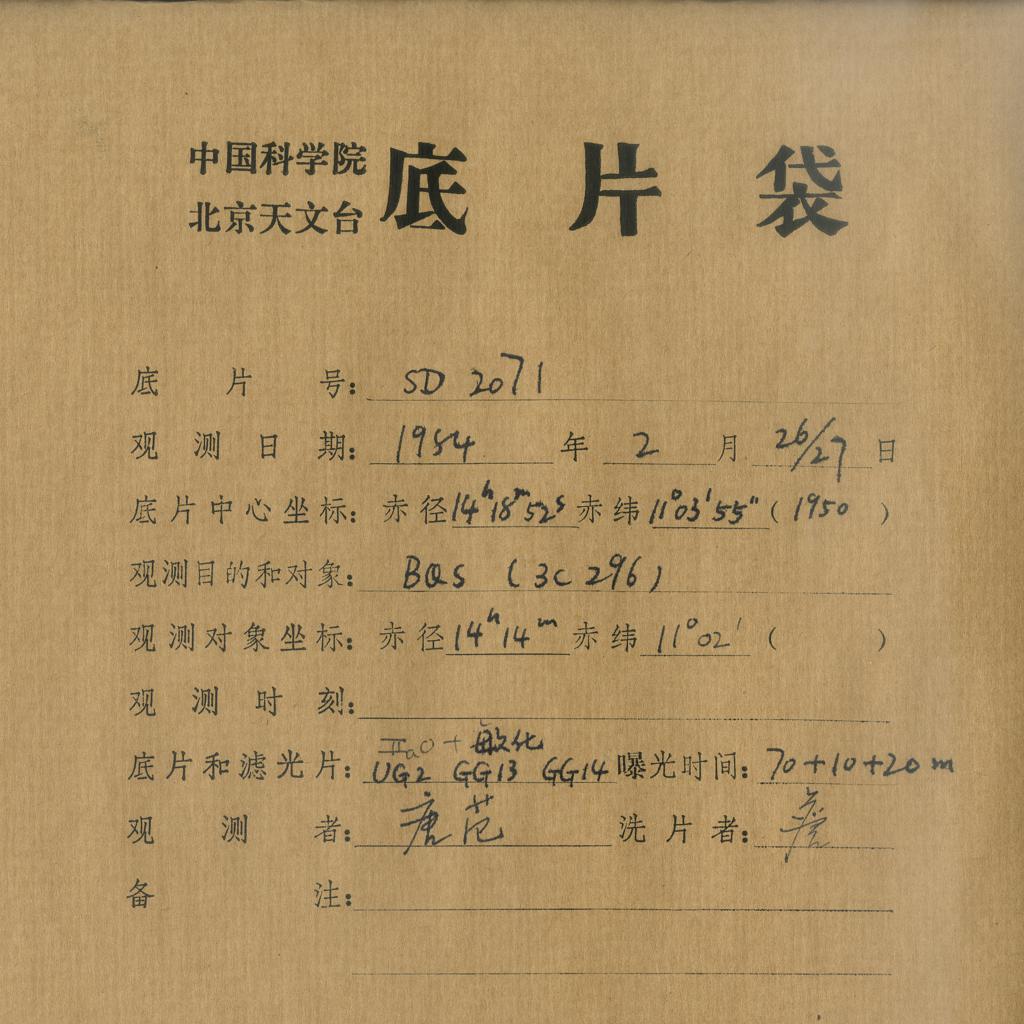 中国科学院
北京天文台 底片袋
底片号: SD 2071
观测日期: 1984 年 2 月 26/27 日
底片中心坐标: 赤径 14h18m52s 赤纬 11°03'55" (1950)
观测目的和对象: BQS (3C296)
观测对象坐标: 赤径 14h14m 赤纬 11°02' ( )
观测时刻:
IIaO + 敏化
底片和滤光片: UG2 GG13 GG14 曝光时间: 70+10+20m
观测者: 唐 范 洗片者:
备注: